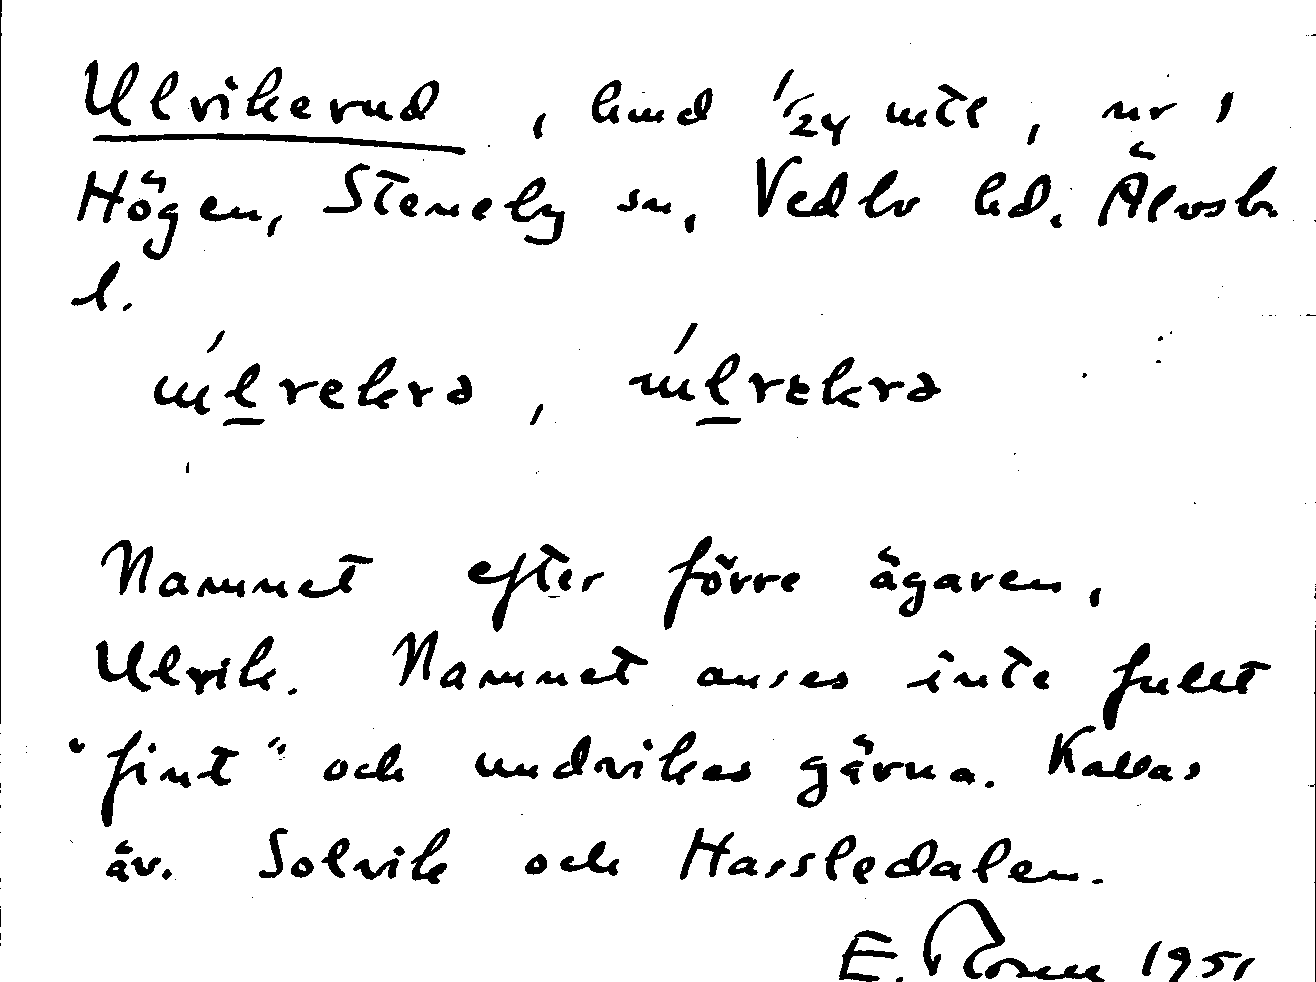 Ulvikerud, hmd 1/24 mtl, nr 1
Högen, Steneby sn, Vedbo hd. Älvsb
l.
Namnet efter förre ägaren,
Ulrik. Namnet anses inte fullt
"fint" och undvikes gärna. Kallas
äv. Solvik och Hassledalen.
E. Rosen 1951